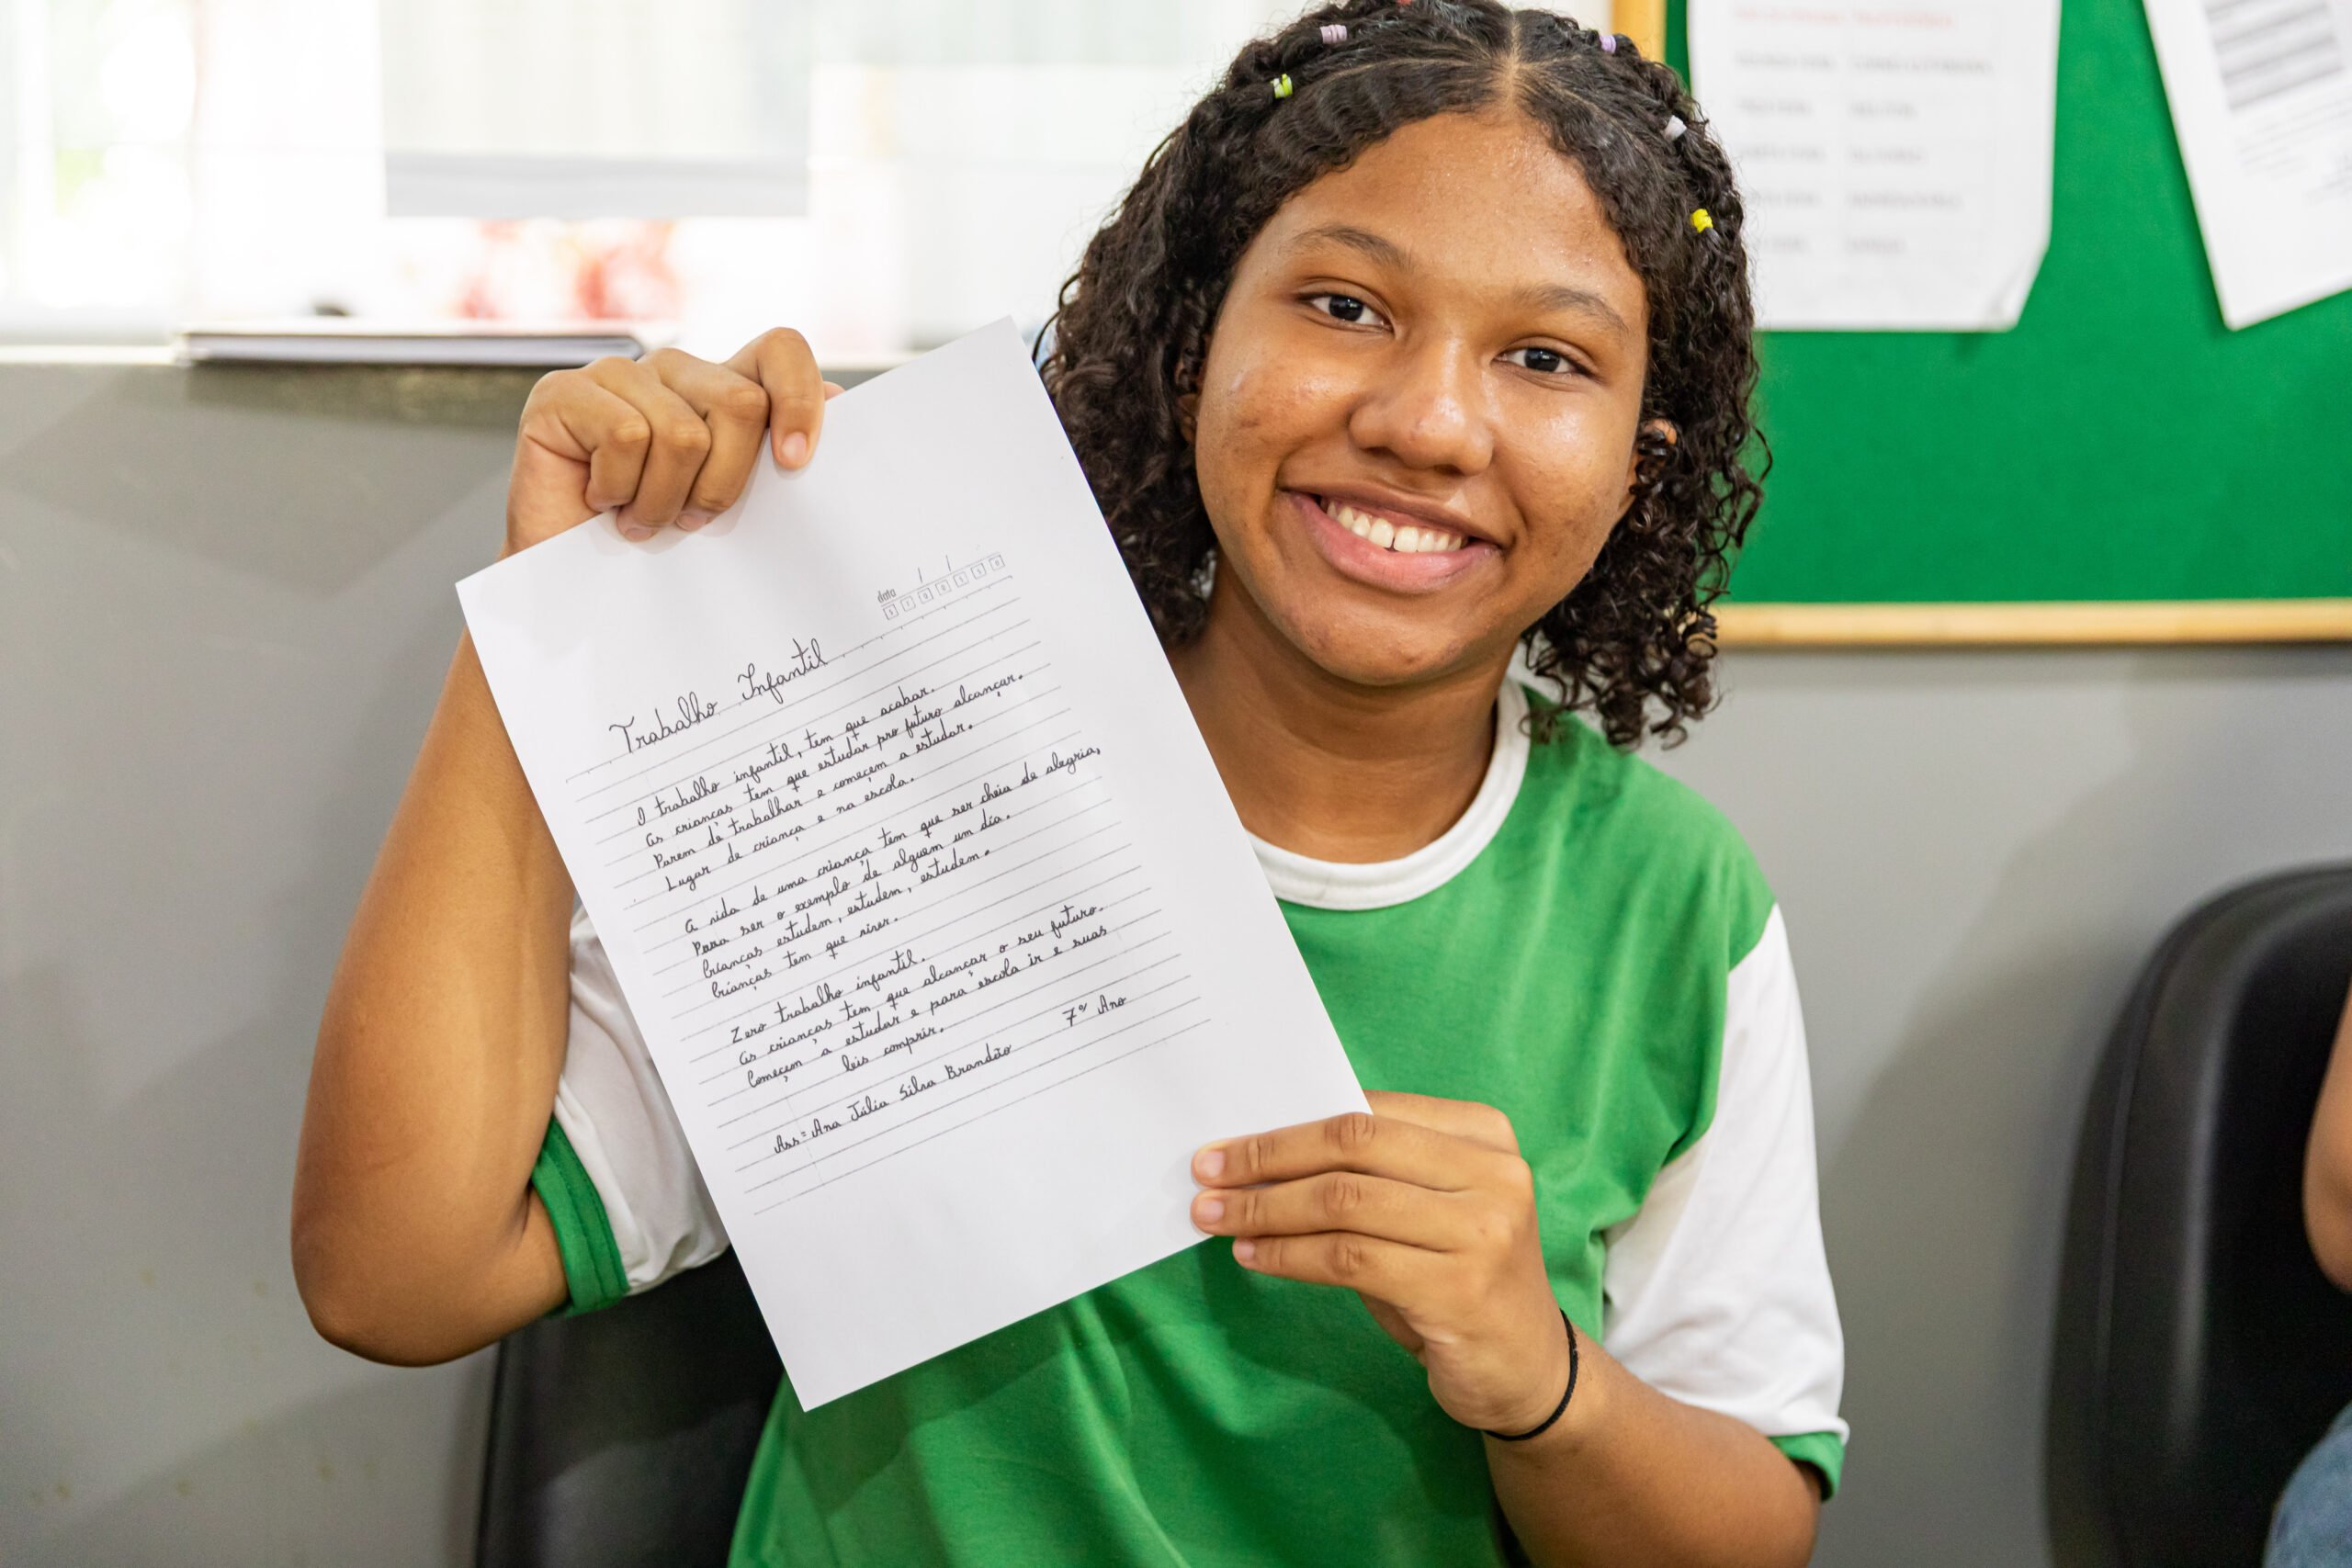 data / /
S T Q Q S S D
Trabalho Infantil
O trabalho infantil, tem que acabar.
As crianças tem que estudar pro futuro alcançar.
Parem de trabalhar e começem a estudar.
Lugar de criança e na escola.
A vida de uma criança tem que ser cheia de alegria,
Para ser o exemplo de alguem um dia.
Crianças estudem, estudem, estudem.
Crianças tem que viver.
Zero trabalho infantil.
As crianças tem que alcançar o seu futuro.
Começem a estudar e para escola ir e suas
leis comprir.
Ass= Ana Júlia Silva Brandão 7º Ano